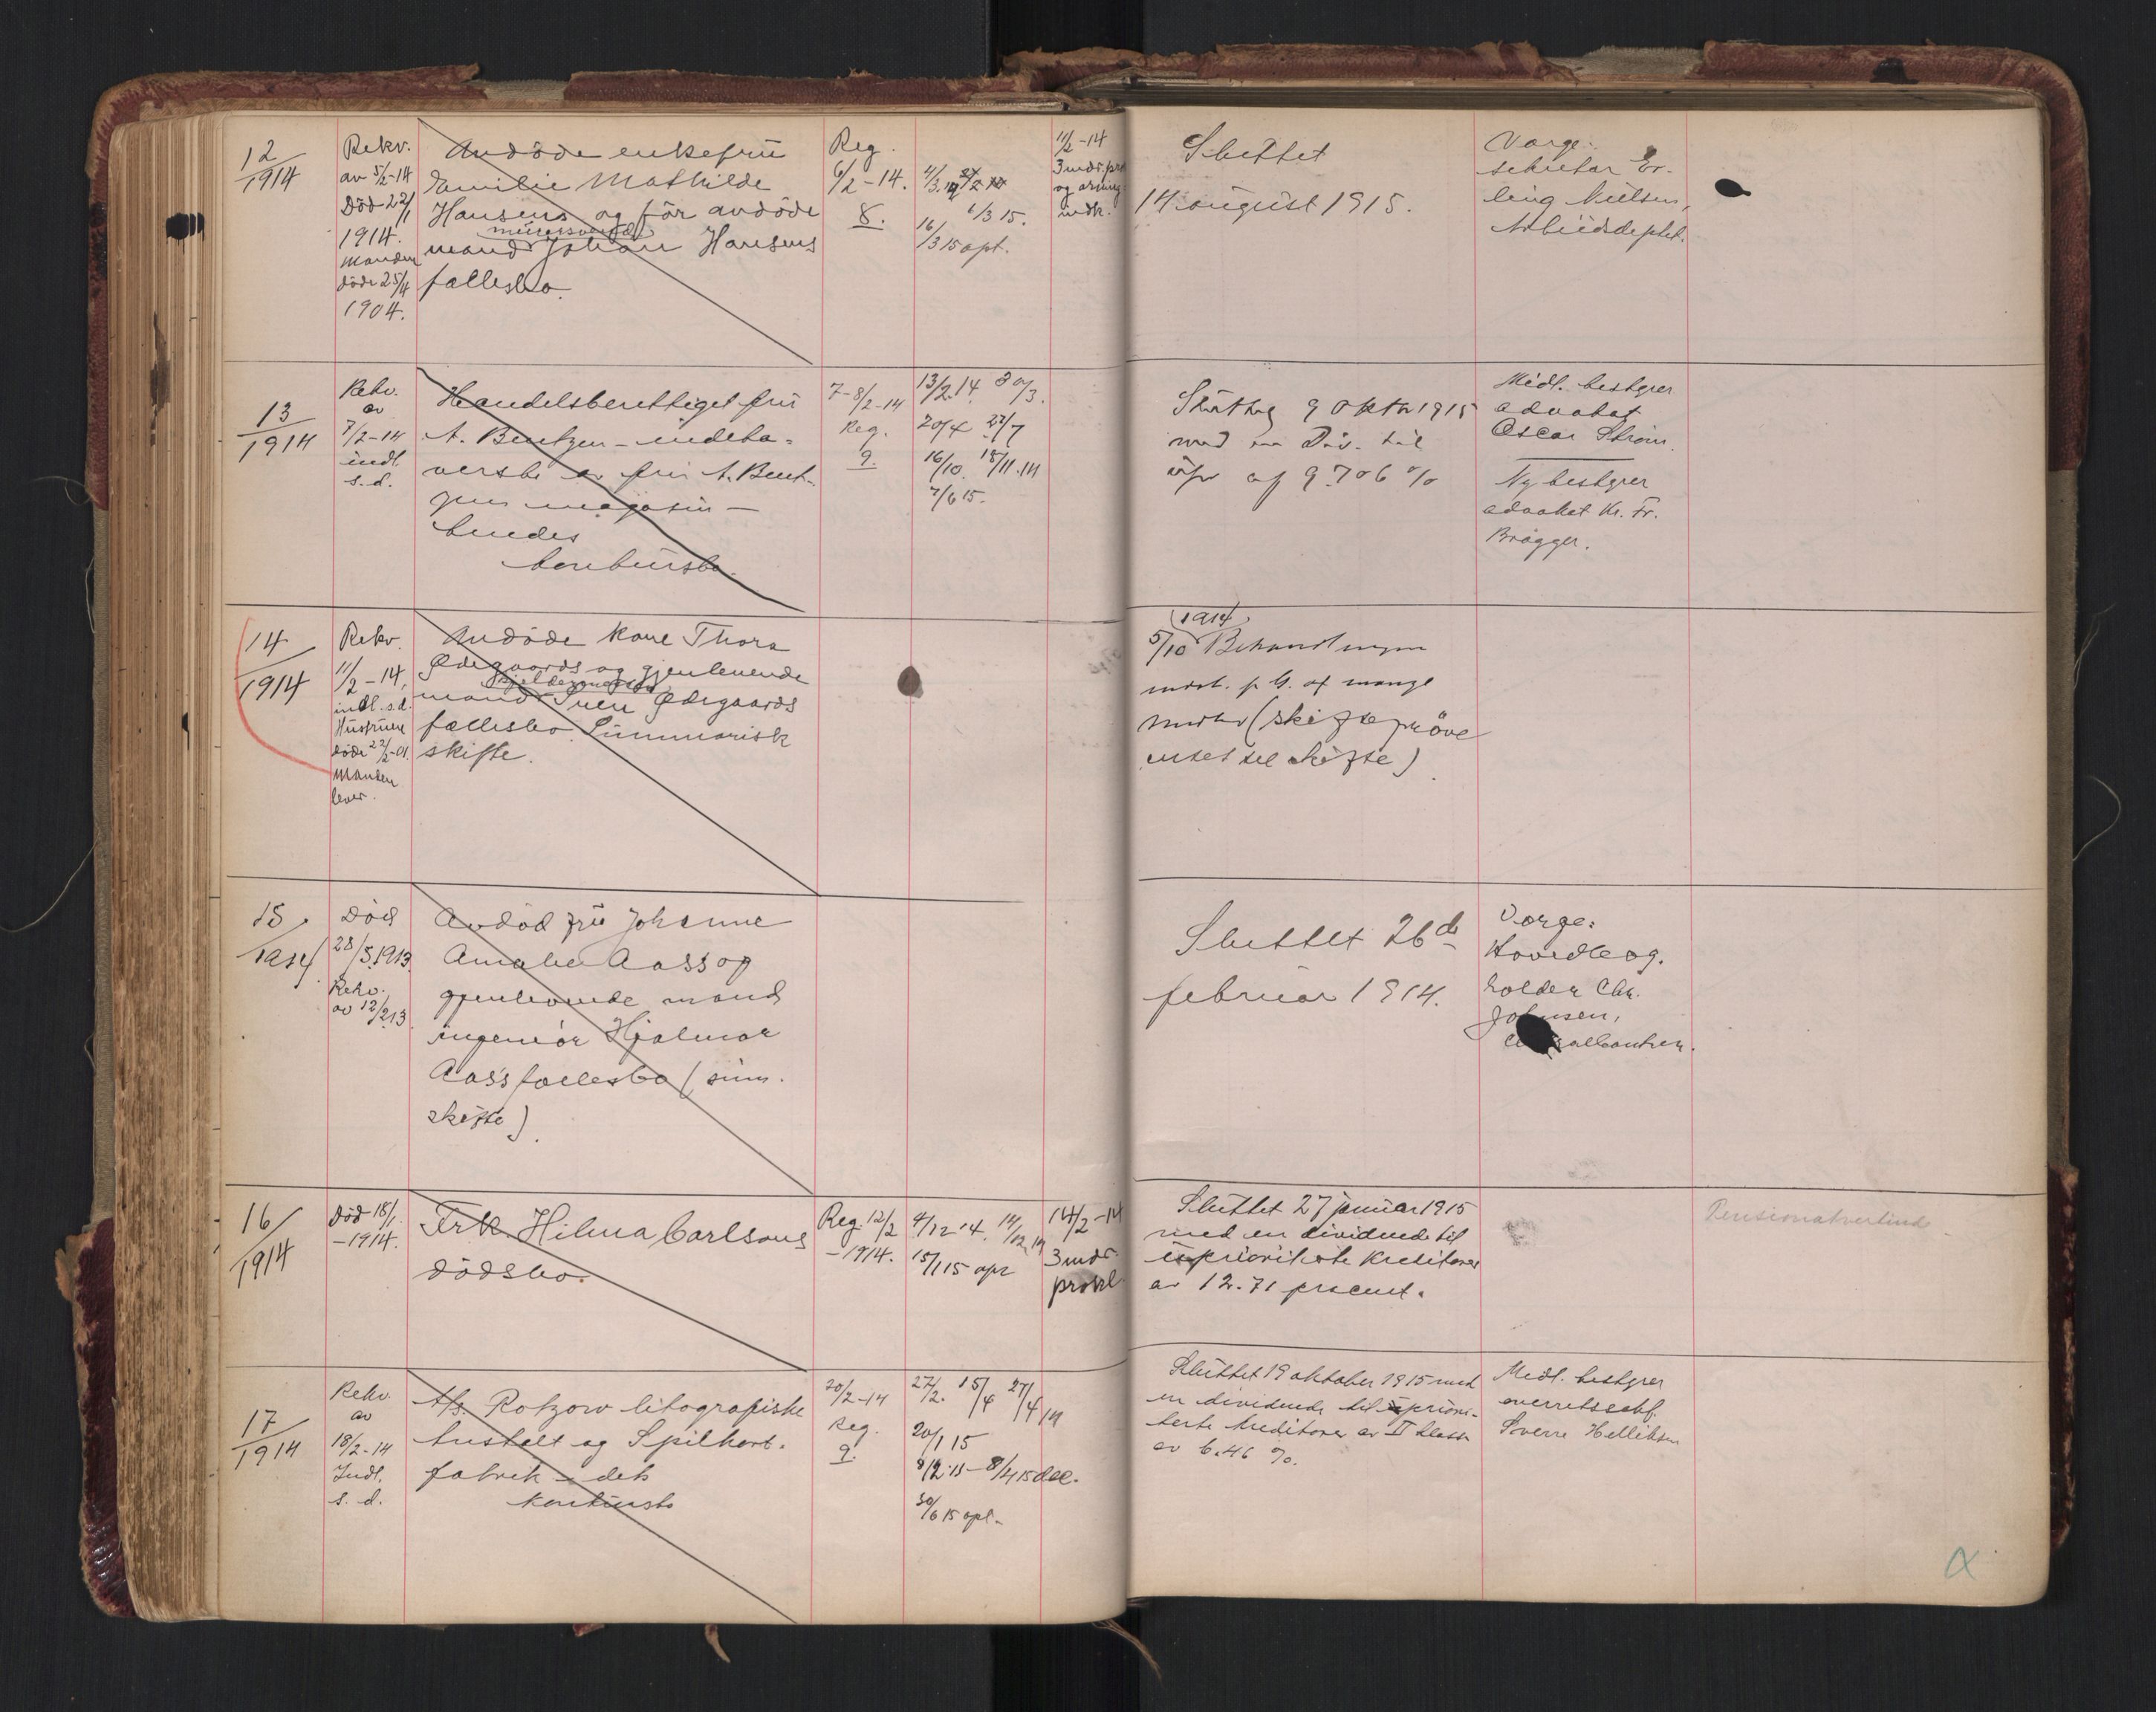 12/1914
Rekv.
av 5/2-14
Död 22/1
1914.
Manden
döde 25/4
1904.
Avdöde enkefrü
Emilie Mathilde
Hansens og för avdöde
mürersvend
mand Johan Hansens
fællesbo.
Reg.
6/2-14.
8.
4/3.14
6/3 15.
16/3 15 opt.
11/2-14
3 mdr. pro
og arving
indk.
Slüttet
14 august 1915.
Værge:
sekretær Er-
ling Nielsen,
Arbeidsdeptet.
13/1914
Rekv.
av
7/2-14
indl.
s.d.
Handelsberettiget frü
A. Bentzen - indeha-
verske av frü A. Bent-
zens magasin -
hendes
konkürsbo.
7-8/2-14
Reg.
9.
13/2.14 30/3.
20/4 27/7
16/10. 18/11.14
7/6 15.
Slüttet 9 oktbr 1915
med en Div. til
üpr af 9.706 %
Midl. bestyrer
advokat
Oscar Ström.
Ny bestyrer
advokat Kr. Fr.
Brøgger.
14/1914
Rekv.
11/2-14,
indl. s.d.
Hüstruen
döde 22/2-01.
Manden
lever.
Avdöde kone Thora
Ødegaards og gjenlevende
mand Iver Ødegaards
fællesbo. Sümmarisk
skifte.
(1914)
5/10 Behandlingen
indst. p. G. af mangl
midler (skifteprøve
intet til skifte)
15/1914
Död
28/5.1913.
Rekv.
av 12/2 13
Avdöd frü Johanne
Amalie Aass og
gjenlevende mand
ingeniör Hjalmar
Aass fællesbo (süm.
skifte).
Slüttet 26de
februar 1914.
Værge:
Hovedbog-
holder Chr.
Johnsen,
Centralbanken.
16/1914
Död 18/1
-1914.
Frk. Hilma Carlsons
dödsbo.
Reg. 12/2
-1914.
4/12 14. 14/12 14
15/1 15 opt
14/2-14
3 mdr.
prokl.
Slüttet 27 januar 1915
med en dividende til
üprioriterte kreditorer
av 12.71 procent.
Pensionatvertinde
17/1914
Rekv.
av
18/2-14
Indl.
s. d.
A/s. Rotzow litografiske
Anstalt og Spilkort-
fabrik - dets
konkürsbo
20/2-14
Reg.
9.
27/2. 15/4 27/4 14
20/1 15
8/2.15 - 8/4 15 dec.
30/6 15 opt.
Slüttet 19 oktober 1915 med
en dividende til üpriori-
terte kreditorer av II klasse
av 6.46 %.
Midl. bestyrer
overretssakf.
Sverre Helliksen